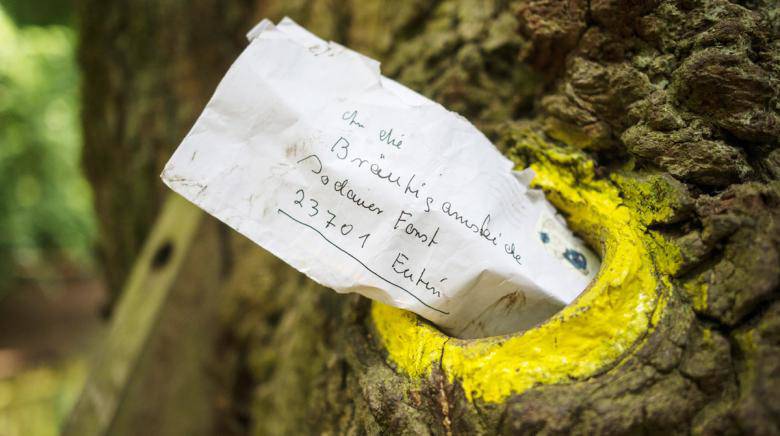 An die
Bräutigamseiche
Dodauer Forst
23701 Eutin